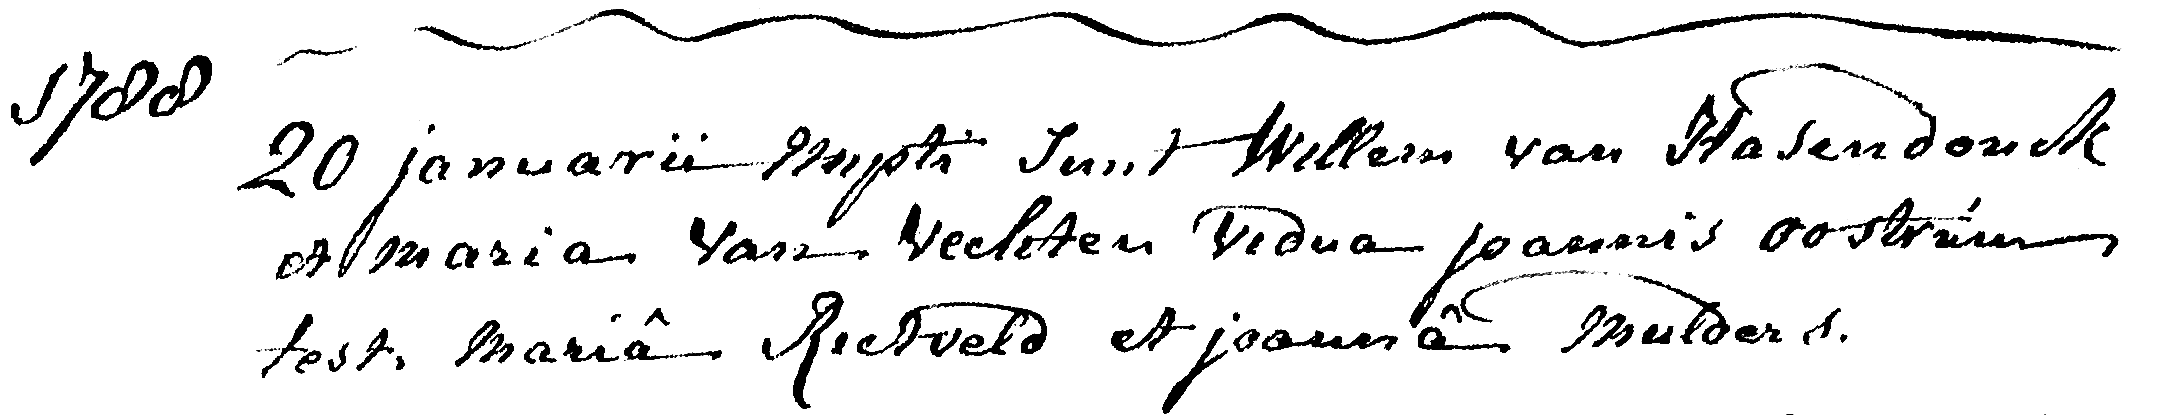 1788
20 januarii Nupti Sunt Willem van Hasendonck
et maria van Veehten vidua joannis oostrum
test. Mariâ Rietveld et joannâ Mulders.